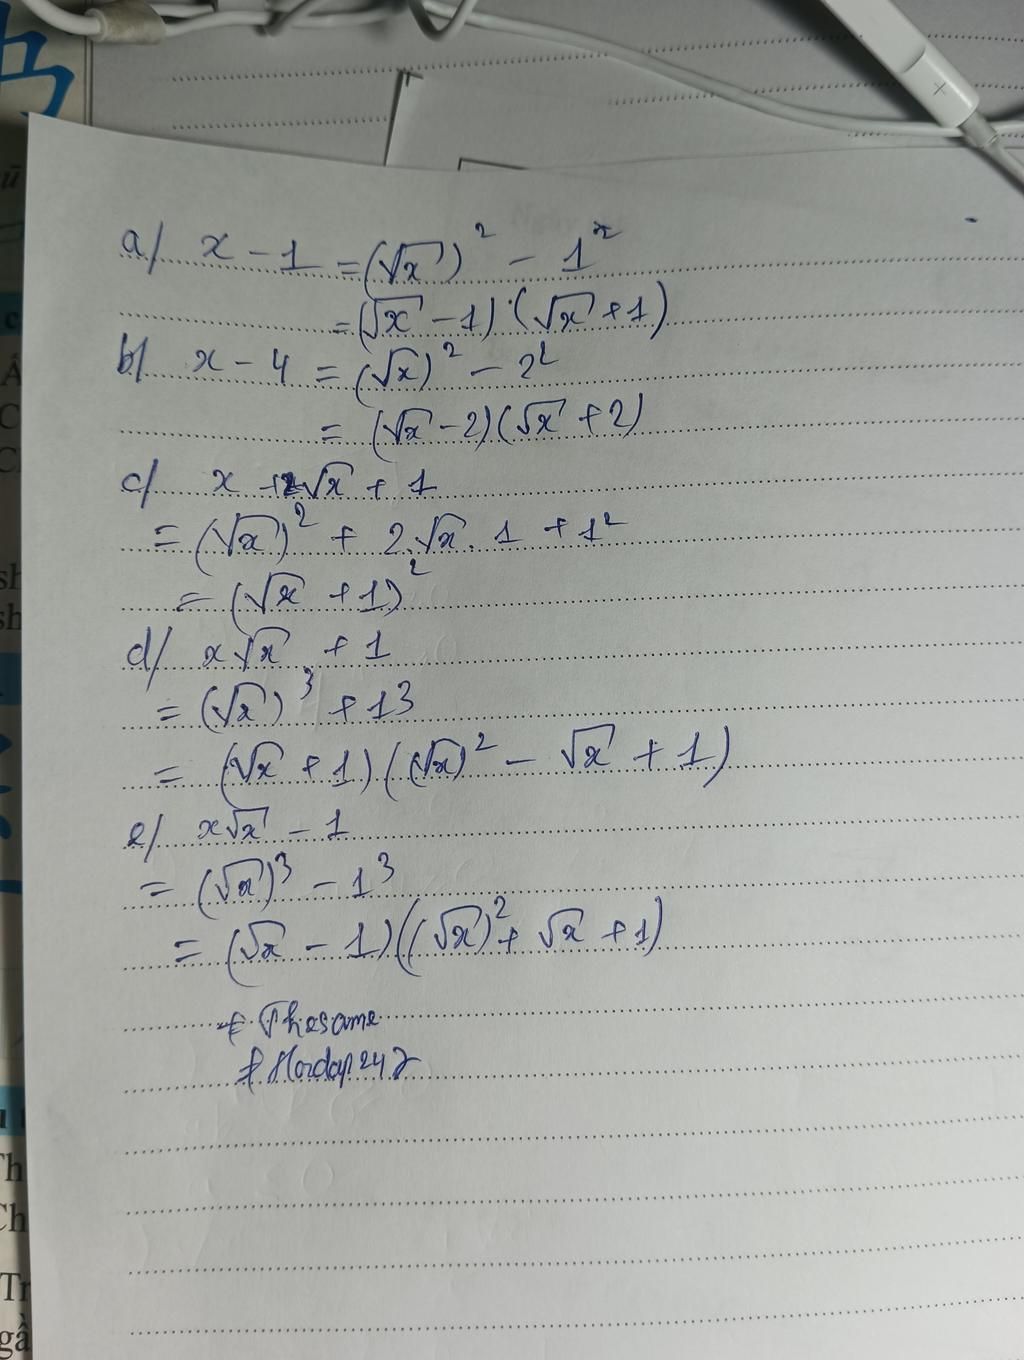 a/ x - 1 = (√x)² - 1²
= (√x - 1).(√x + 1)
b/ x - 4 = (√x)² - 2²
= (√x - 2)(√x + 2)
c/ x + 2√x + 1
= (√x)² + 2.√x. 1 + 1²
= (√x + 1)²
d/ x√x + 1
= (√x)³ + 1³
= (√x + 1)((√x)² - √x + 1)
e/ x√x - 1
= (√x)³ - 1³
= (√x - 1)((√x)² + √x + 1)
# Thesame